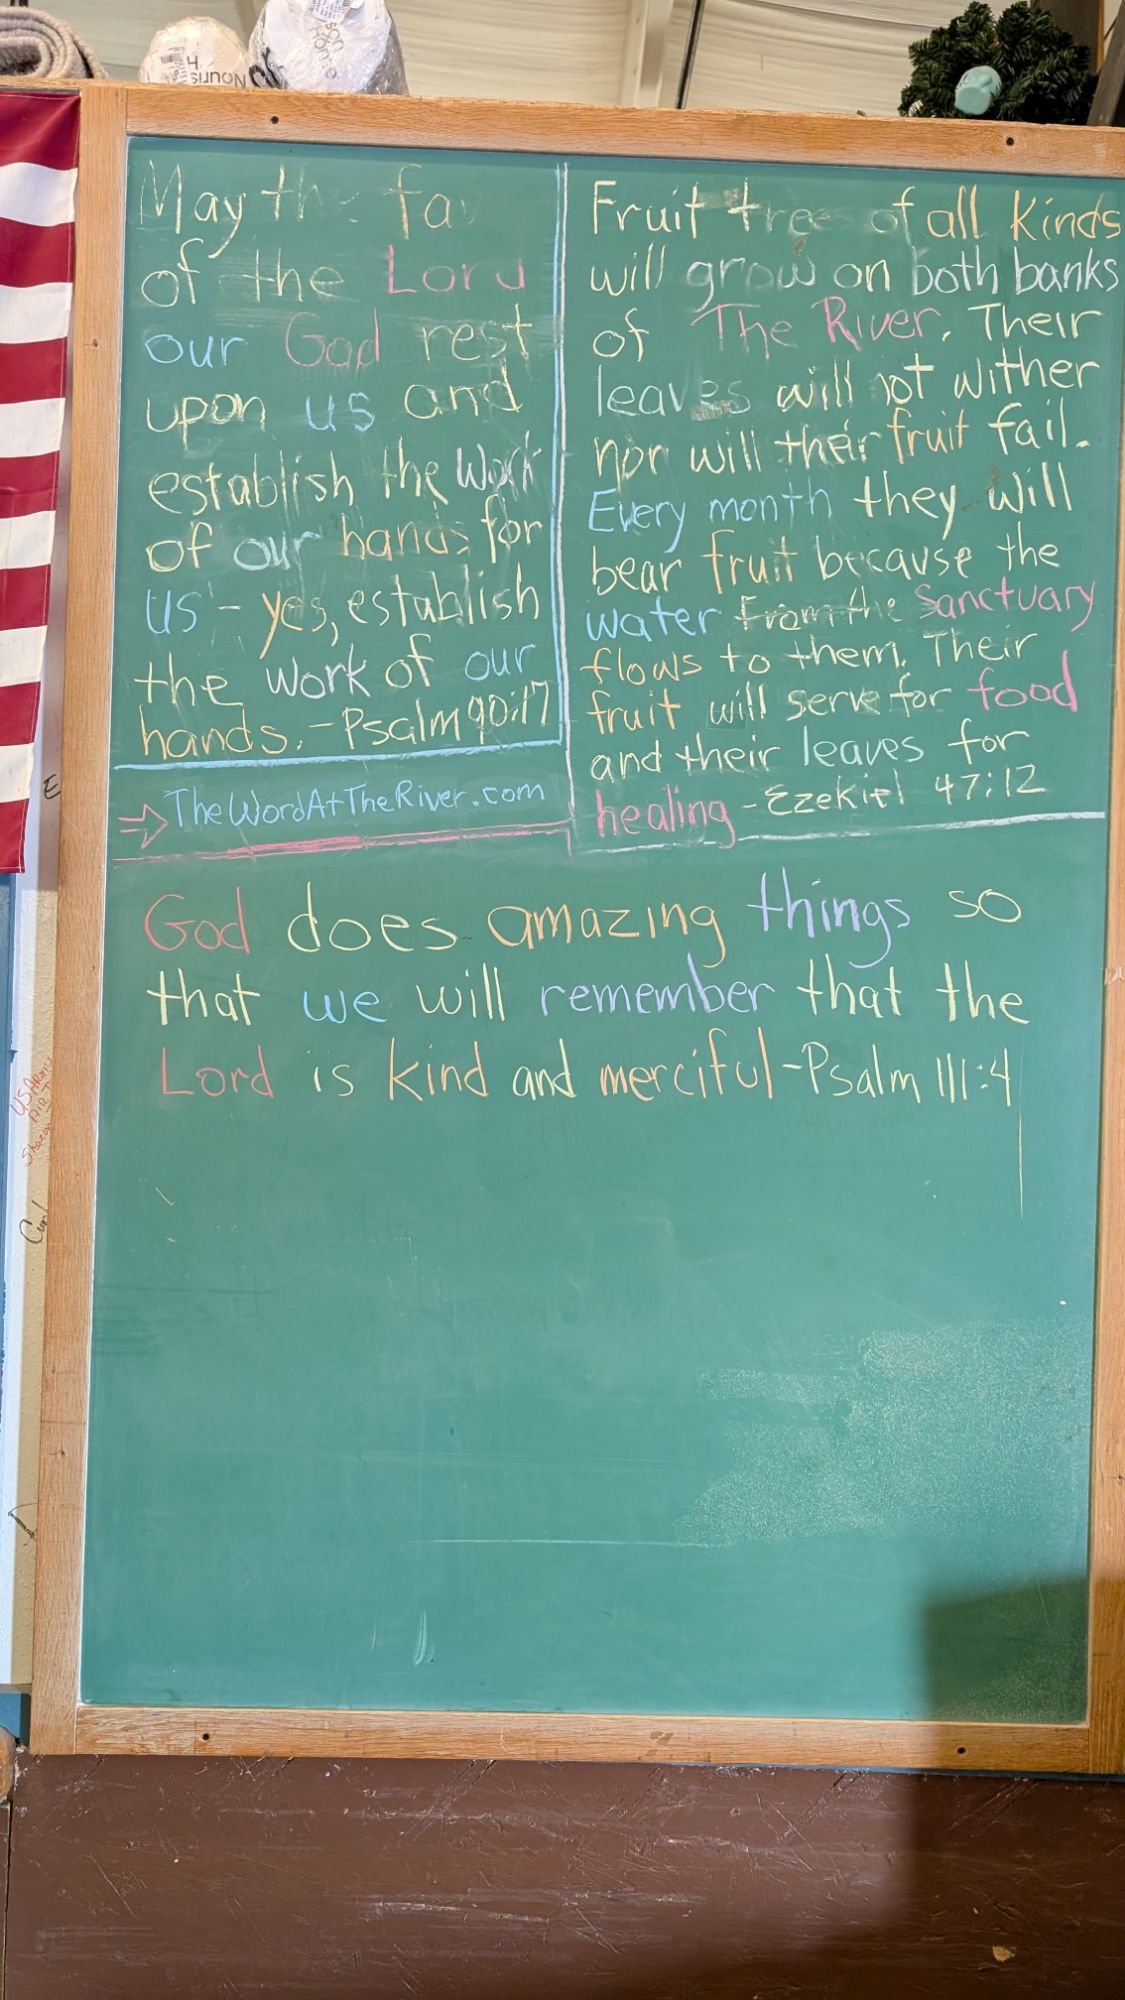 May the fav
of the Lord
our God rest
upon us and
establish the work
of our hands for
us - yes, establish
the work of our
hands. - Psalm 90:17
TheWordAtTheRiver.com
Fruit trees of all Kinds
will grow on both banks
of The River. Their
leaves will not wither
nor will their fruit fail.
Every month they will
bear fruit because the
water from the Sanctuary
flows to them. Their
fruit will serve for food
and their leaves for
healing - Ezekiel 47:12
God does amazing things so
that we will remember that the
Lord is kind and merciful - Psalm 111:4
US Army
Sharon